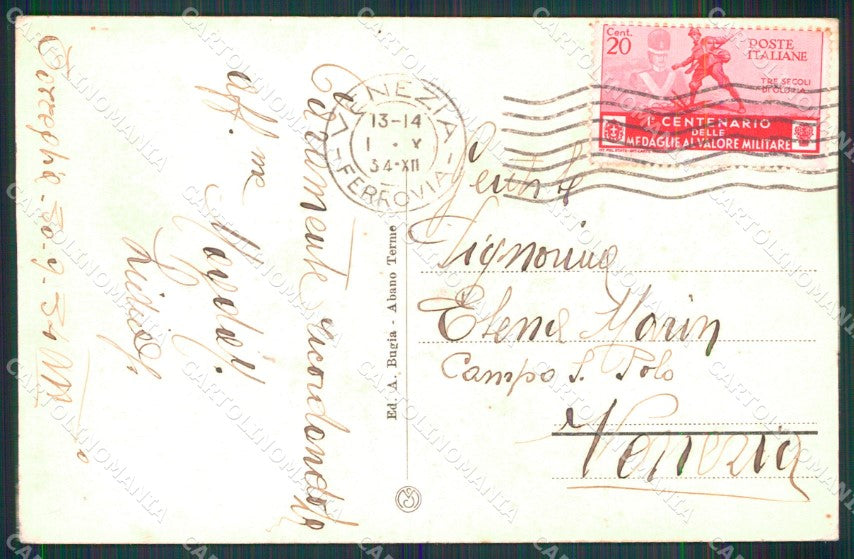 Cent.
20
POSTE
ITALIANE
TRE SECOLI
DI GLORIA
1° CENTENARIO
DELLE
MEDAGLIE AL VALORE MILITARE
VENEZIA
13-14
1 · X
34·XII
FERROVIA
Gentile
Signorina
Elena Marin
Campo S. Polo
Venezia
Caramente ricordandola
aff.me
Luidig.
30-9-34 XII
Ed. A. Bugia - Abano Terme
CARTOLINOMANIA